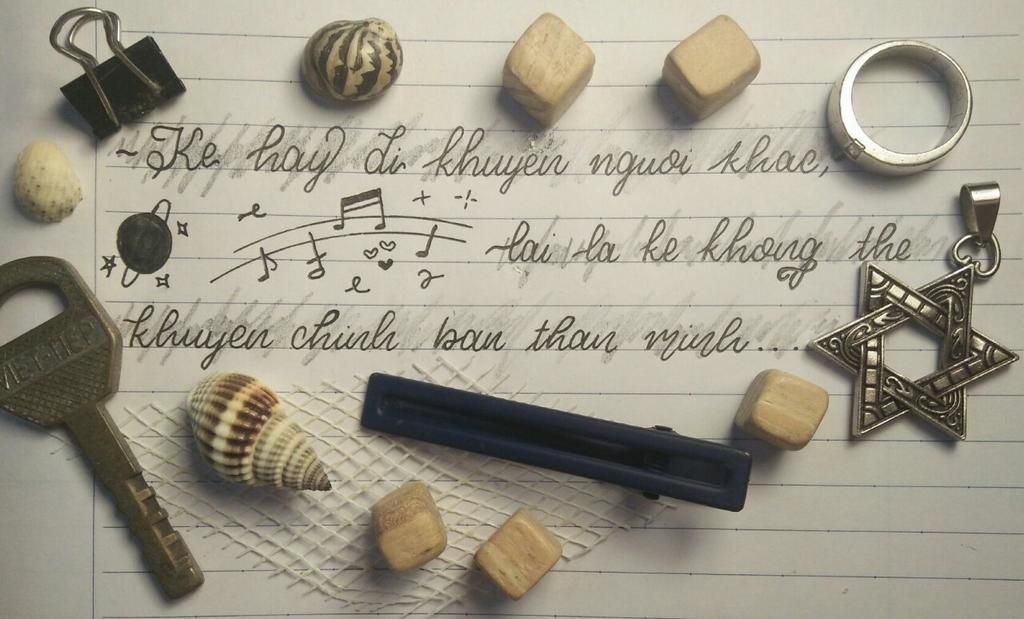 ~ Ke hay di khuyen nguoi khac,
lai la ke khong the
khuyen chinh ban than minh....
VIET-TIEP